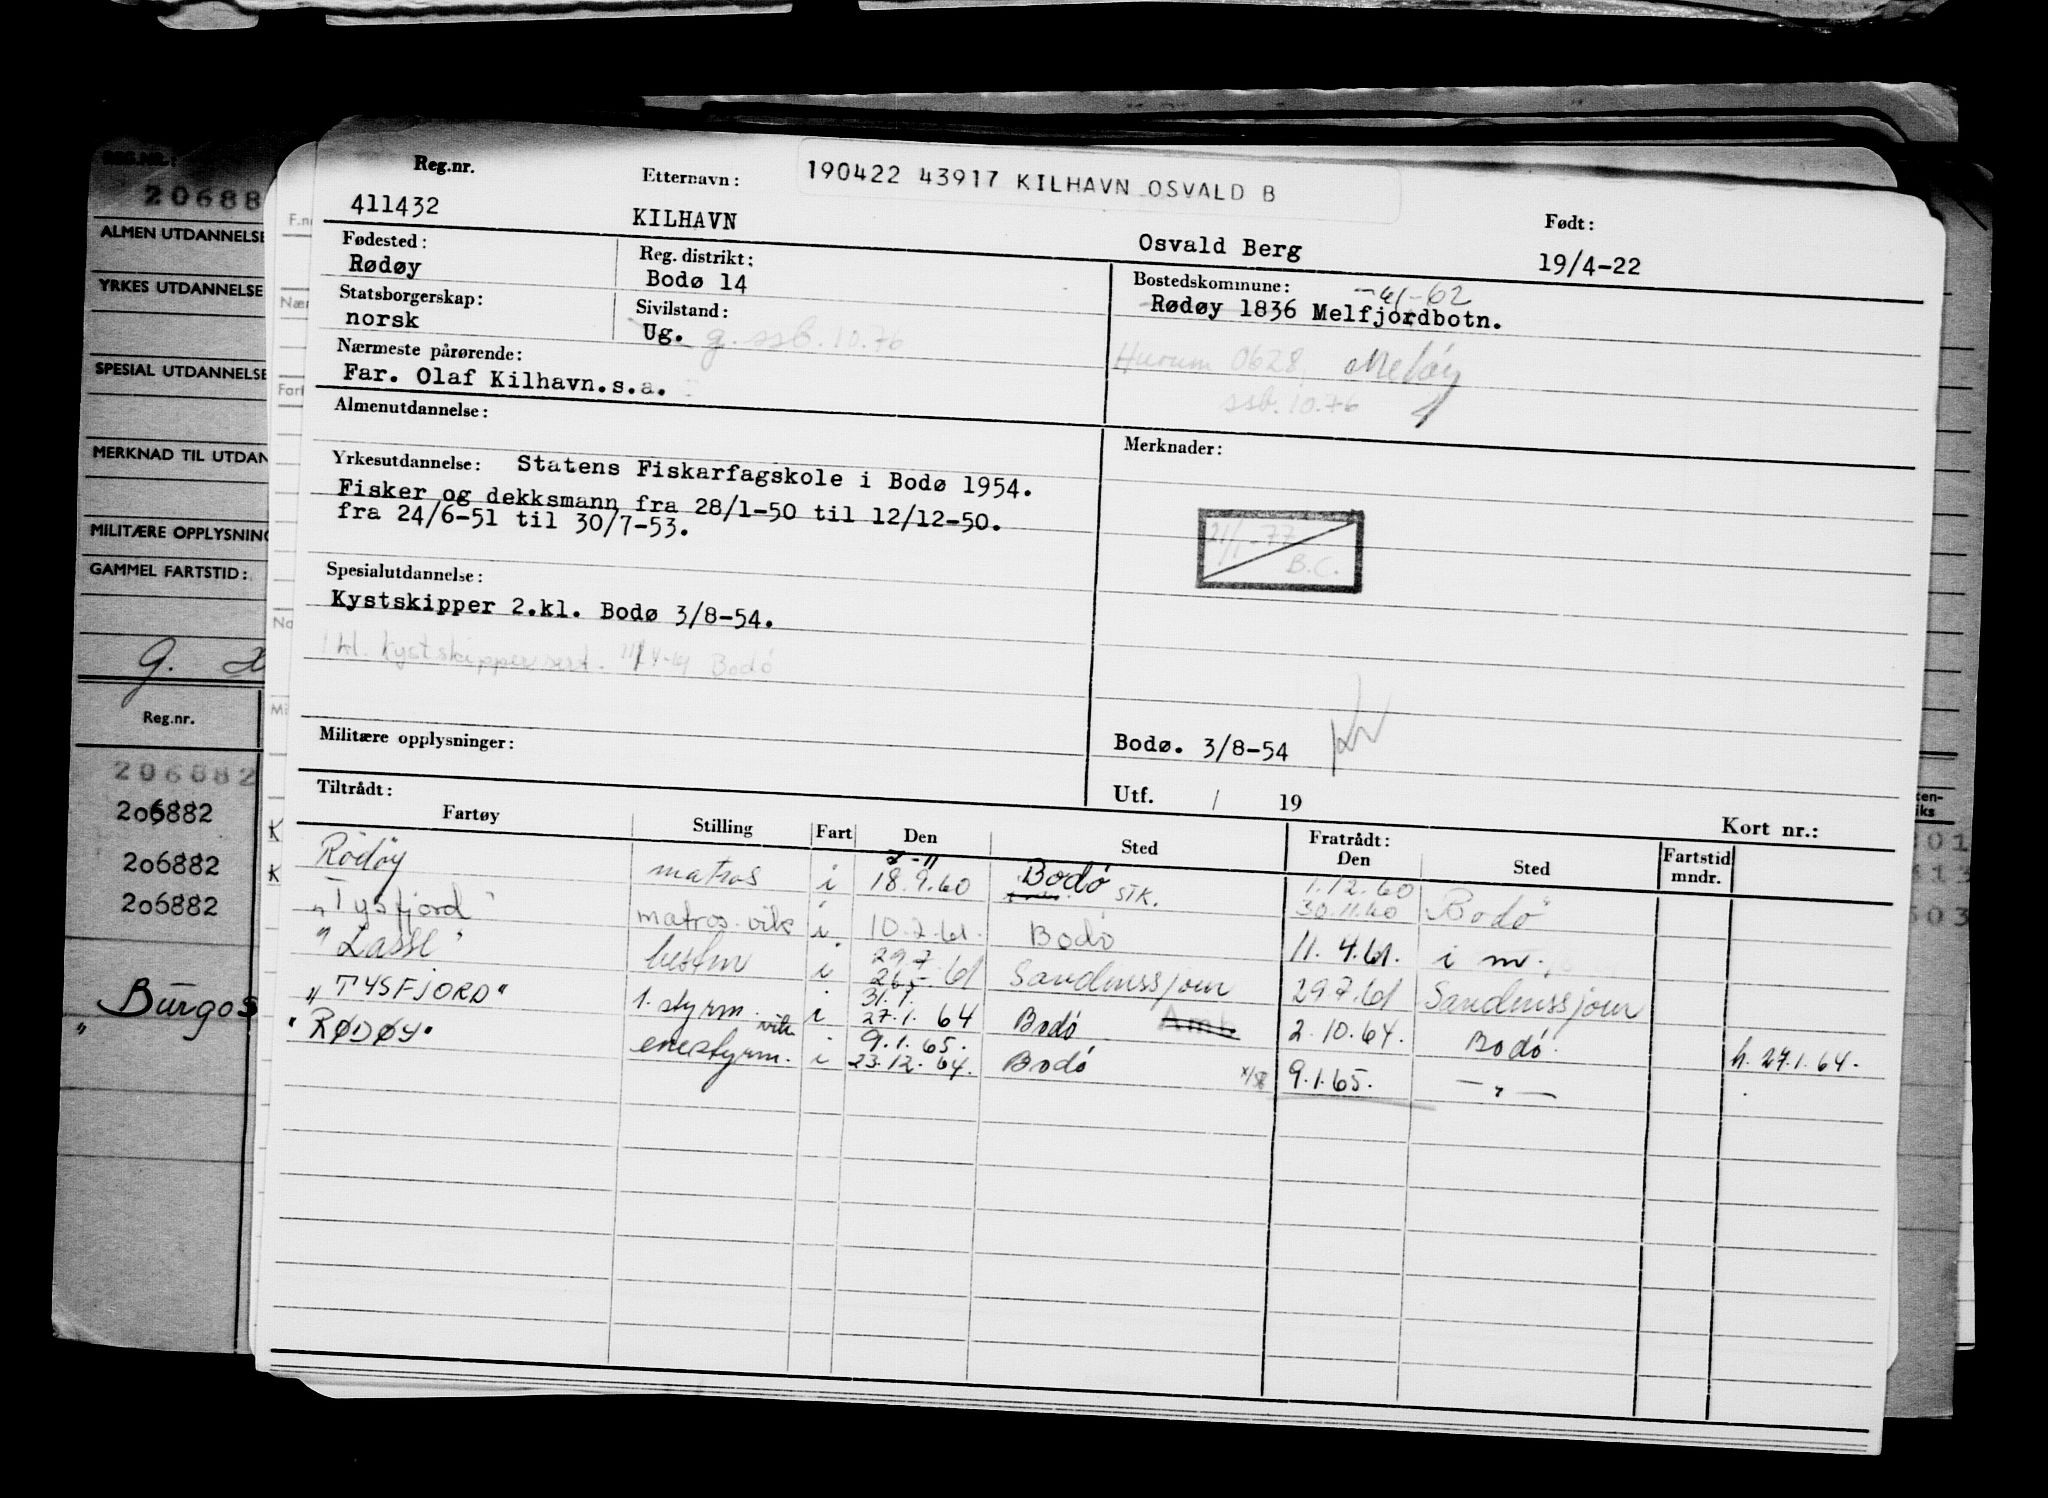 Reg.nr.
Etternavn:
190422 43917 KILHAVN OSVALD B
411432
KILHAVN
Osvald Berg
Født:
19/4-22
Fødested:
Rødøy
Reg. distrikt:
Bodø 14
Bostedskommune:
-61-62
Rødøy 1836 Melfjordbotn.
Statsborgerskap:
norsk
Sivilstand:
Ug. g. ssb. 10.76
Hurum 0628, Meløy
ssb. 10.76
Nærmeste pårørende:
Far. Olaf Kilhavn.s.a.
Almenutdannelse:
Merknader:
Yrkesutdannelse: Statens Fiskarfagskole i Bodø 1954.
Fisker og dekksmann fra 28/1-50 til 12/12-50.
fra 24/6-51 til 30/7-53.
21/1-77
B.C.
Spesialutdannelse:
Kystskipper 2.kl. Bodø 3/8-54.
1 kl. Kystskippersert. 11/4-61 Bodø
Militære opplysninger:
Bodø. 3/8-54
Utf. / 19
Kort nr.:
Tiltrådt:
Fartøy Stilling Fart Den Sted Fratrådt: Den Sted Fartstid mndr.
Rødøy matros i 18.9.60 Bodø STK. 1.12.60 30.11.60 Bodø
"Tysfjord" matros vik i 10.2.61. Bodø 11.4.61. i m.
"Lasse" bestm i 29.7 26.5-61 Sandnessjøen 29.7.61 Sandnessjøen
"TYSFJORD" 1. styrm. vik i 31.1. 27.1.64 Bodø 2.10.64. Bodø. h. 27.1.64.
"RØDØY" enestyrm. i 9.1.65. 23.12.64. Bodø 9.1.65. — " —
206882
ALMEN UTDANNELSE
YRKES UTDANNELSE
SPESIAL UTDANNELSE
MERKNAD TIL UTDAN
MILITÆRE OPPLYSNING
GAMMEL FARTSTID:
G.
Reg.nr.
206882
206882
206882
206882
Burgos
"